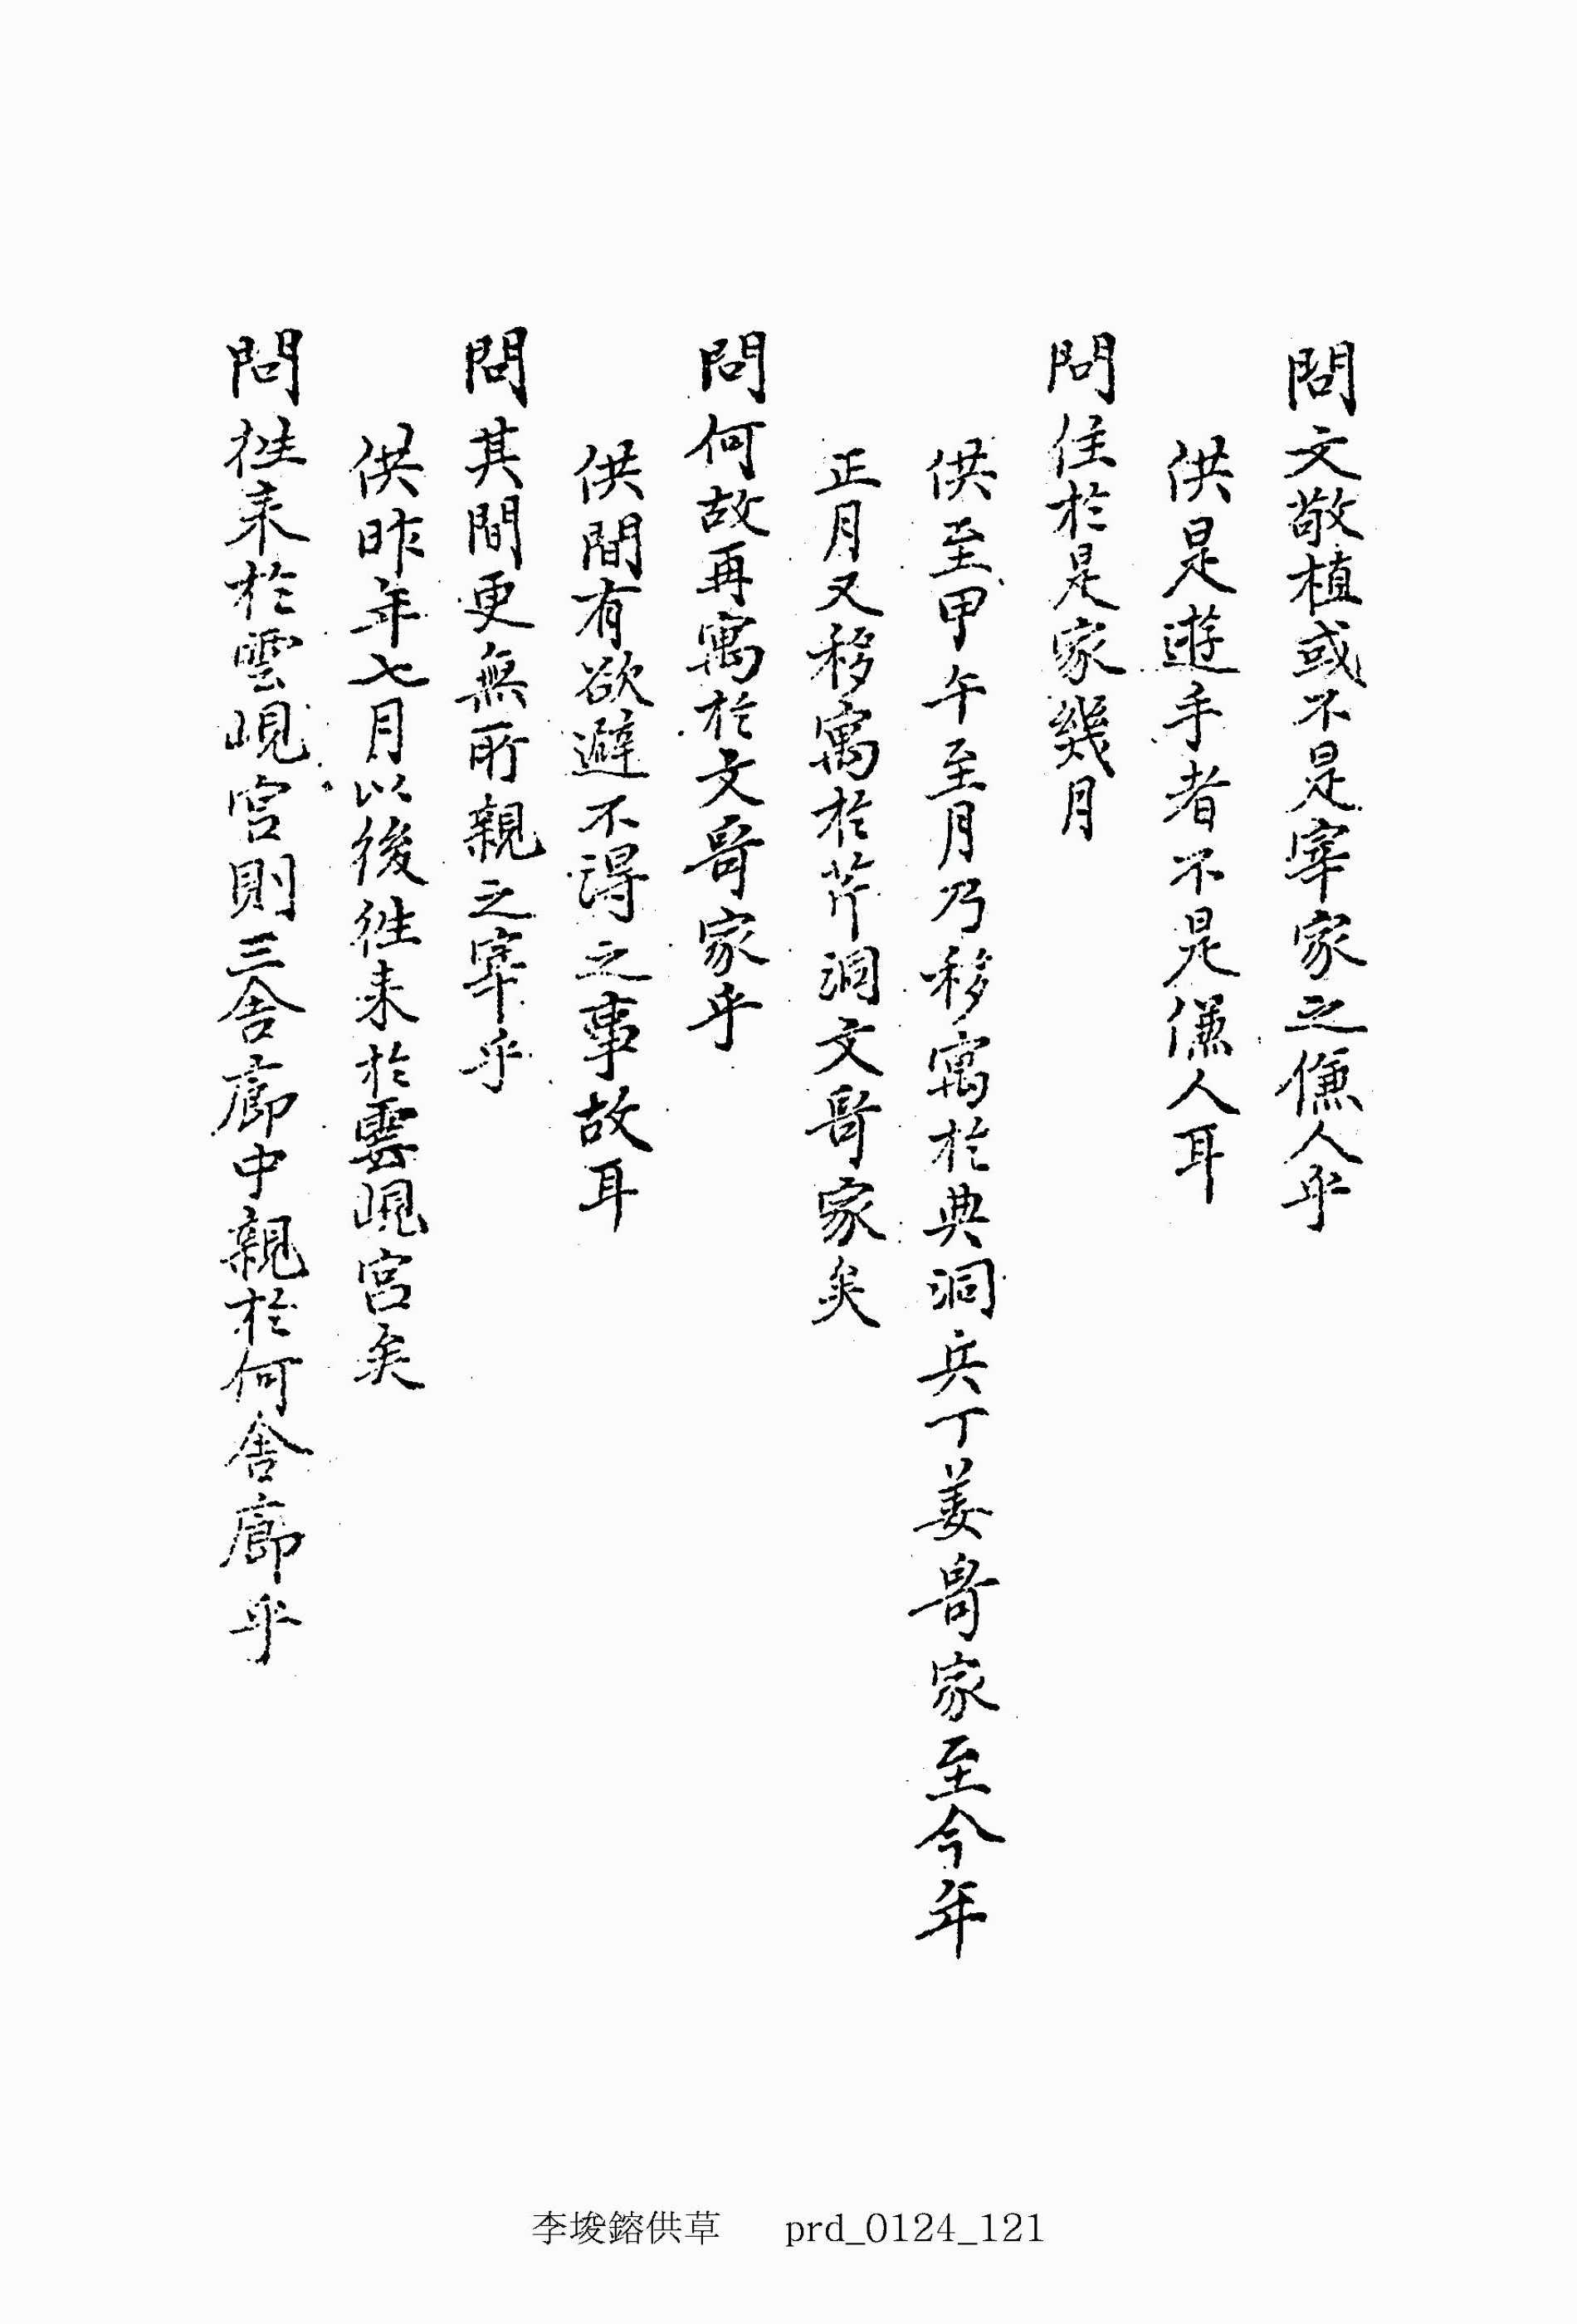 問文敬植或不是宰家之傔人乎
供是遊手者不是傔人耳
問住於是家幾月
供至甲午至月乃移寓於典洞兵丁姜哥家至今年
正月又移寓於芹洞文哥家矣
問何故再寓於文哥家乎
供間有欲避不得之事故耳
問其間更無所親之宰乎
供昨年七月以後徃来於雲峴宮矣
問徃来於雲峴宮則三舍廊中親於何舍廊乎
李埈鎔供草 prd_0124_121